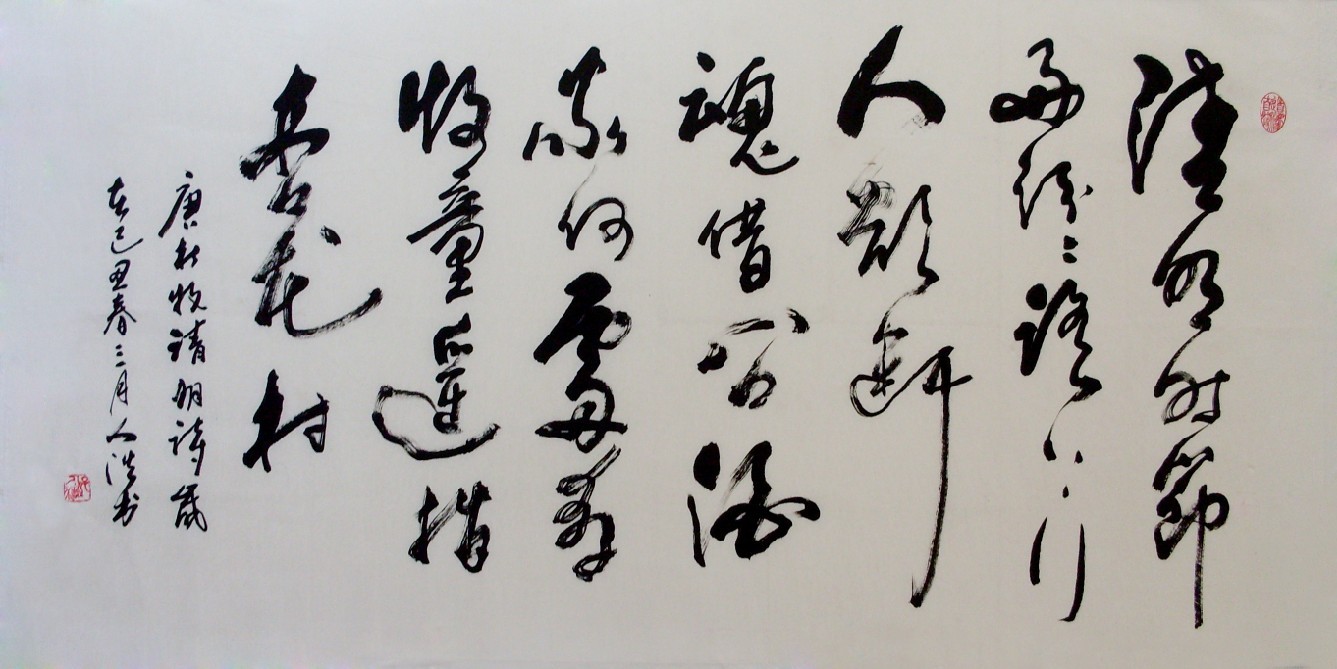 清明时節
雨纷纷路上行
人欲断
魂借问酒
家何處有
牧童遥指
杏花村
唐杜牧清明詩歲
在己丑春三月人洪书